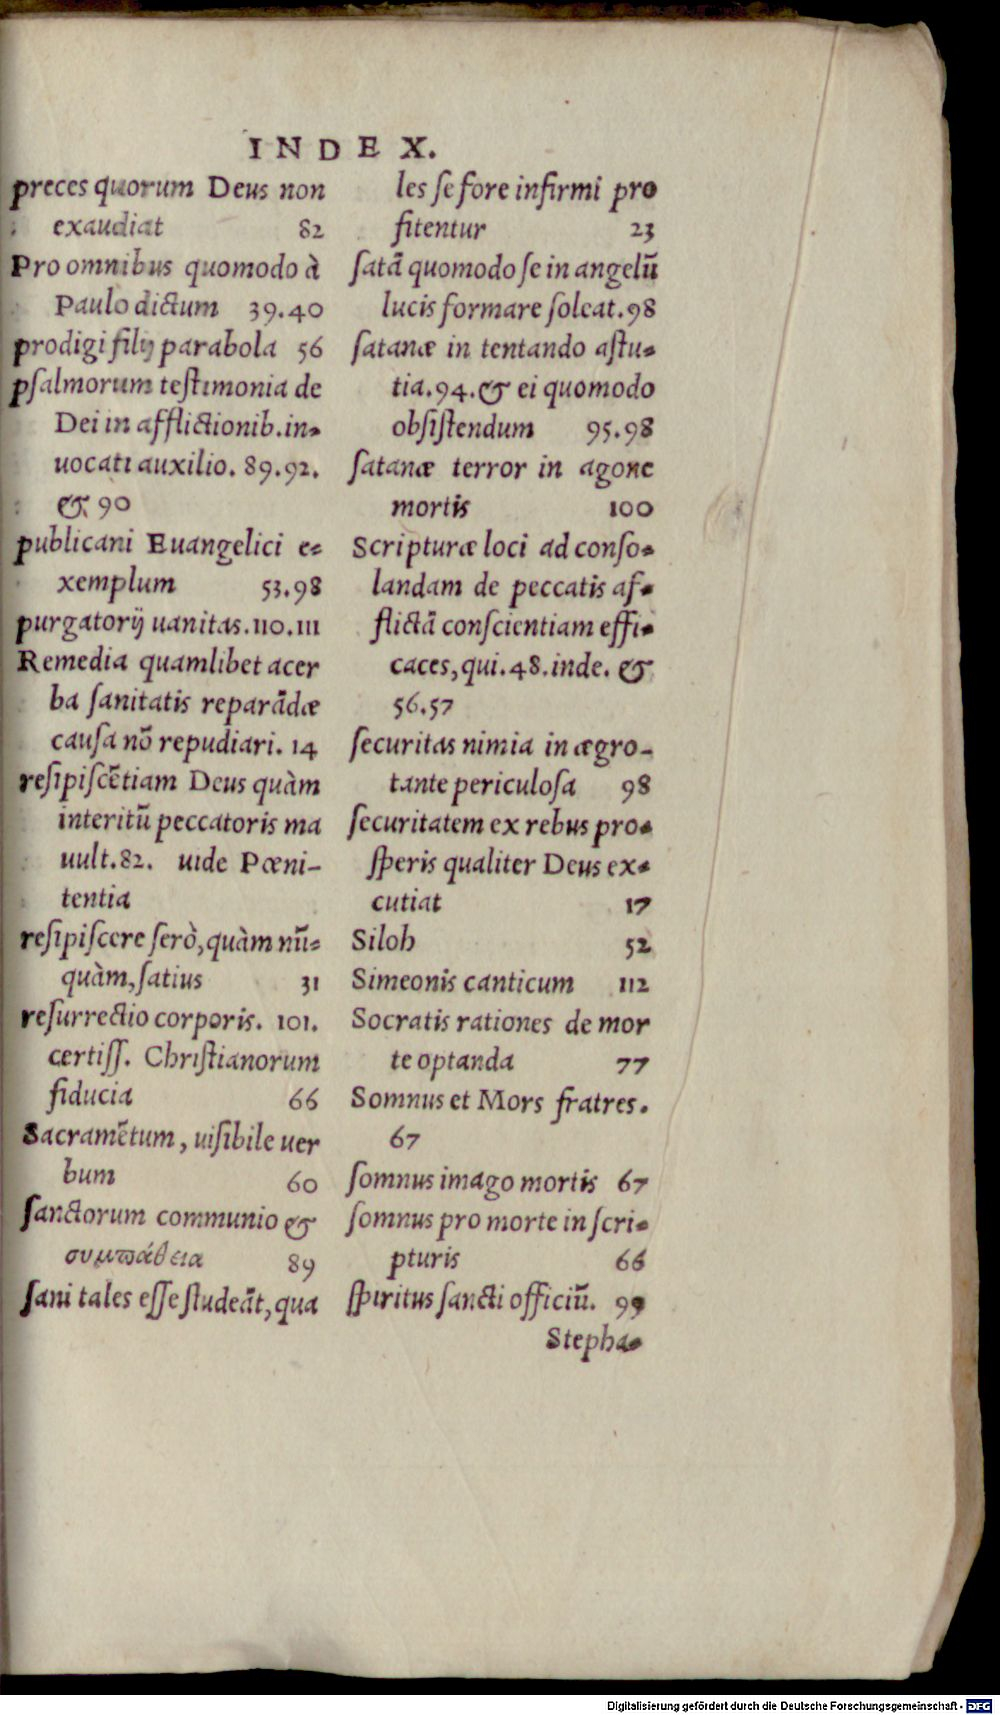 INDEX.
preces quorum Deus non
exaudiat 82
Pro omnibus quomodo à
Paulo dictum 39.40
prodigi filij parabola 56
pſalmorum teſtimonia de
Dei in afflictionib. in-
uocati auxilio. 89.92.
& 90
publicani Euangelici e-
xemplum 53.98
purgatorij uanitas. 110.111
Remedia quamlibet acer
ba ſanitatis reparādæ
cauſa nō repudiari. 14
reſipiſcētiam Deus quàm
interitū peccatoris ma
uult. 82. uide Pœni-
tentia
reſipiſcere ſerò, quàm nū-
quàm, ſatius 31
reſurrectio corporis. 101.
certiſſ. Chriſtianorum
fiducia 66
Sacramētum, uiſibile uer
bum 60
ſanctorum communio &
συμπάθεια 89
ſani tales eſſe ſtudeāt, qua
les ſe fore infirmi pro
fitentur 23
ſatā quomodo ſe in angelū
lucis formare ſoleat. 98
ſatanæ in tentando aſtu-
tia. 94. & ei quomodo
obſiſtendum 95.98
ſatanæ terror in agone
mortis 100
Scripturæ loci ad conſo-
landam de peccatis af-
flictā conſcientiam effi-
caces, qui. 48. inde. &
56.57
ſecuritas nimia in ægro-
tante periculoſa 98
ſecuritatem ex rebus pro-
ſperis qualiter Deus ex-
cutiat 17
Siloh 52
Simeonis canticum 112
Socratis rationes de mor
te optanda 77
Somnus et Mors fratres.
67
ſomnus imago mortis 67
ſomnus pro morte in ſcri-
pturis 66
ſpiritus ſancti officiū. 99
Stepha-
Digitalisierung gefördert durch die Deutsche Forschungsgemeinschaft - DFG